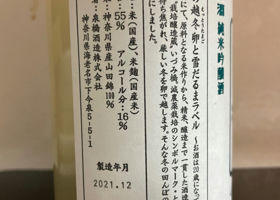 純米吟醸酒
越冬卵と雪だるまラベル
お酒は20歳になっ
て原料となる米作りから、精米、醸造まで一貫した酒造
栽培醸造蔵」いづみ橋。減農薬栽培のシンボルマーク・と
待ち焦がれ、厳しい冬を卵で越します。そんな冬の田んぼの
にしました。
米(国産)、米麹(国産米)
神奈川県産山田錦100%
55% アルコール分:16%
泉橋酒造株式会社
神奈川県海老名市下今泉5-5-1
製造年月
2021.12